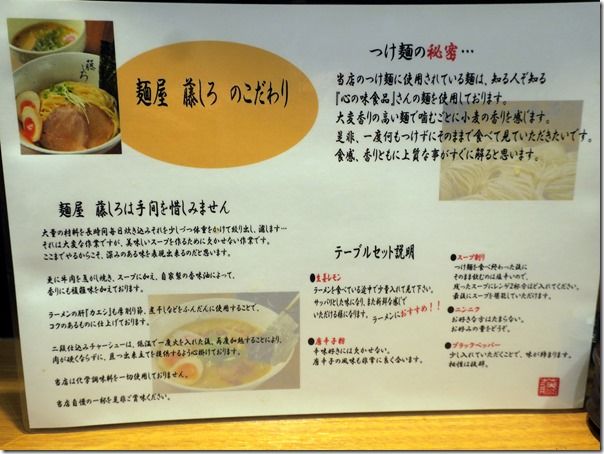 藤しろ
麺屋 藤しろ のこだわり
つけ麺の秘密…
当店のつけ麺に使用されている麺は、知る人ぞ知る
『心の味食品』さんの麺を使用しております。
大変香りの高い麺で噛むごとに小麦の香りを感じます。
是非、一度何もつけずにそのままで食べて見ていただきたいです。
食感、香りともに上質な事がすぐに解ると思います。
麺屋 藤しろは手間を惜しみません
大量の材料を長時間毎日炊き込みそれを少しづつ体重をかけて絞り出し、濾します…
それは大変な作業ですが、美味しいスープを作るために欠かせない作業です。
ここまでやるからこそ、深みのある味を表現出来るのだと思います。
更に牛肉を瓦が焼き、スープに加え、自家製の香味油によって、
香りにも複雑味を加えております。
ラーメンの肝『カエシ』も厚削り節、煮干しなどをふんだんに使用することで、
コクのあるものに仕上げております。
二段仕込みチャーシューは、低温で一度火を入れた後、再度加熱することにより、
肉が硬くならずに、且つ出来立てを提供するよう心掛けております。
当店は化学調味料を一切使用しておりません。
当店自慢の一杯を是非ご賞味ください。
テーブルセット説明
●生姜レモン
ラーメンを食べている途中で少量入れて見て下さい。
サッパリとした味になり、また新鮮な感じで
いただける様になります。 ラーメンにおすすめ!!
●唐辛子粉
辛味好きには欠かせない。
唐辛子の風味も非常に良く合います。
●スープ割り
つけ麺を食べ終わった後に
そのまま飲むのは塩辛いので、
残ったスープにレンゲ2杯分ほど入れてください。
最後にスープを堪能していただけます。
●ニンニク
お好きな方はたまらない。
お好みの量をどうぞ。
●ブラックペッパー
少し入れていただくことで、味が締まります。
相性は抜群。